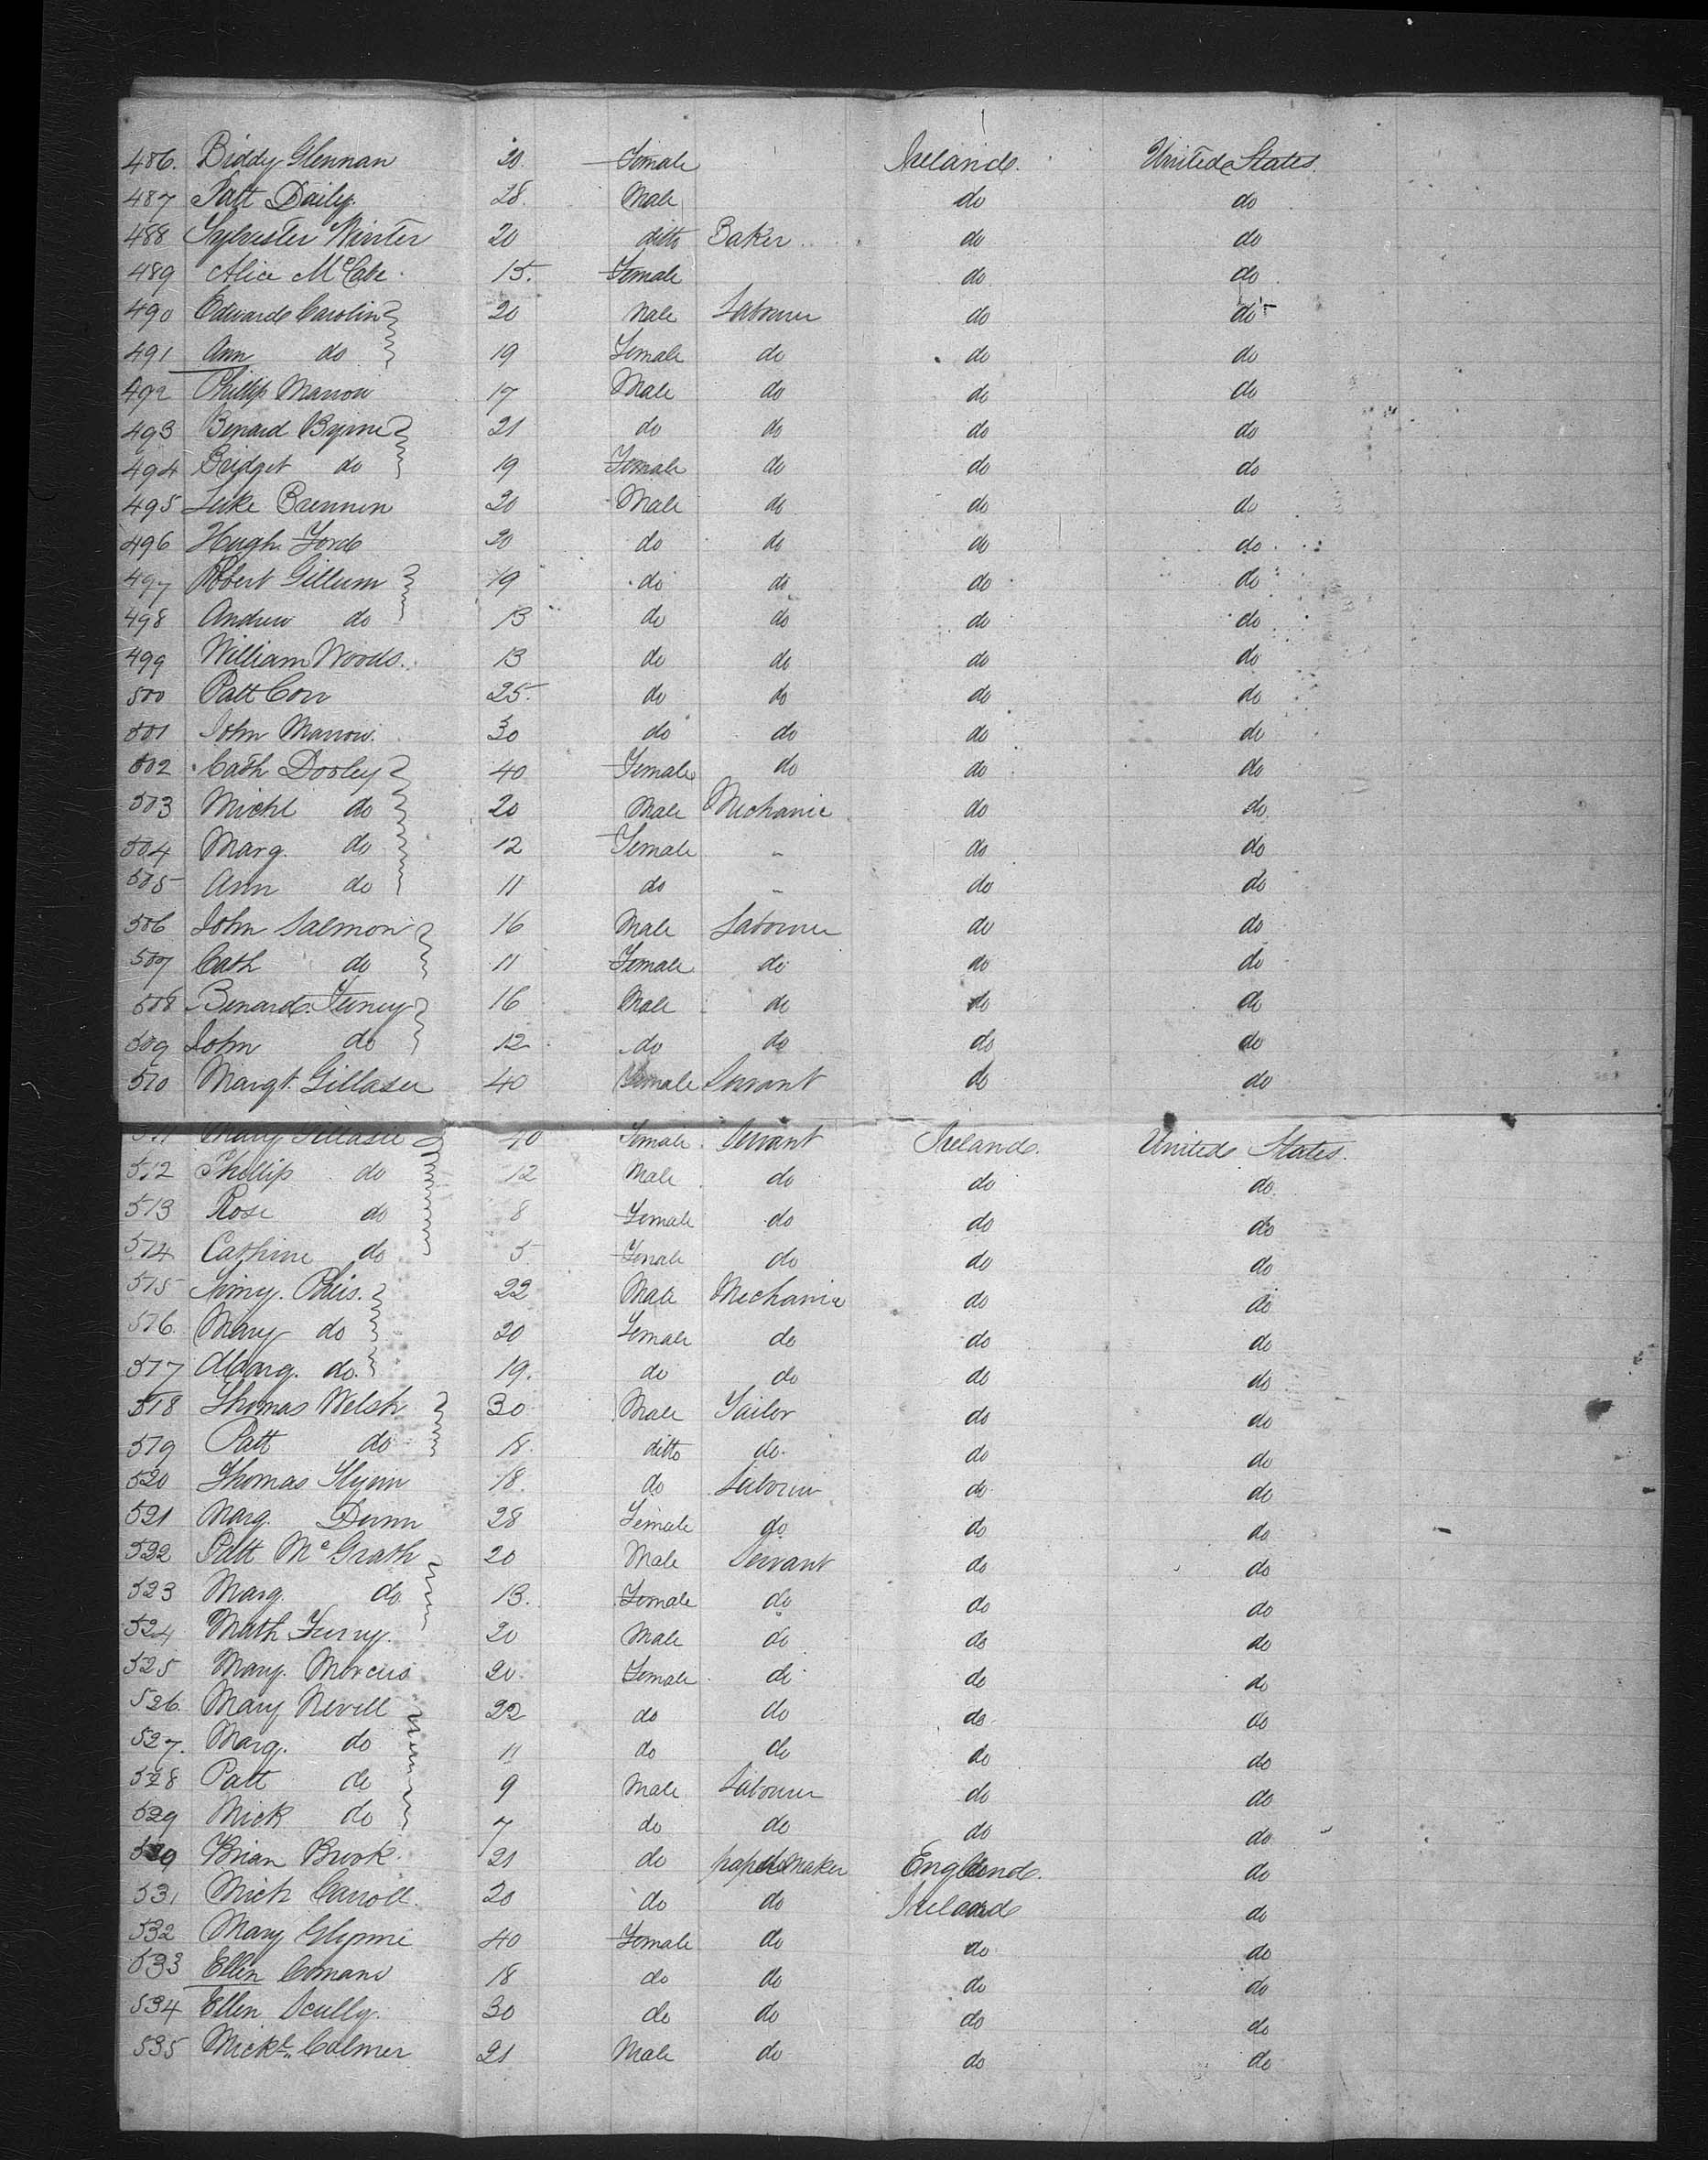 486. Biddy Glennan 20 Female Ireland. United States.
487 Patt Daily. 28. Male do do
488 Sylvester Winter 20 ditto Baker do do
489 Alice McCabe 15. Female do do
490 Edward Carolin 20 Male Labourer do do
491 Ann do 19 Female do do do
492 Phillip Marron 17 Male do do do
493 Benard Byrne 21 do do do do
494 Bridget do 19 Female do do do
495 Luke Brennen 20 Male do do do
496 Hugh Ford 20 do do do do
497 Robert Gillum 19 do do do do
498 Andrew do 13 do do do do
499 William Woods. 13 do do do do
500 Patt Corr 25. do do do do
501 John Marron. 30 do do do do
502 Cath Dooley 40 Female do do do
503 Michl do 20 Male Mechanic do do
504 Marg. do 12 Female " do do
505 Ann do 11 do " do do
506 John Salmon 16 Male Labourer do do
507 Cath do 11 Female do do do
508 Benard 16 Male do do do
509 John do 12 do do do do
510 Margt. 40 Female Servant do do
511 Mary 40 Female Servant Ireland. United States.
512 Phillip do 12 Male do do do
513 Rose do 8 Female do do do
514 Cathrine do 5 Female do do do
515 22 Male Mechanic do do
516. Mary do 20 Female do do do
517 Marg. do. 19. do do do do
518 Thomas Welsh 30 Male Tailor do do
519 Patt do 18. ditto do do do
520 Thomas Flynn 18. do Labourer do do
521 Marg. Dunn 28 Female do do do
522 Patt McGrath 20 Male Servant do do
523 Marg. do 13. Female do do do
524 Math 20 Male do do do
525 Mary. 20. Female do do do
526. Mary Nevell 22 do do do do
527. Marg. do 11 do do do do
528 Patt do 9 Male Labourer do do
529 Mick do 7 do do do do
529 Brian Brook. 21 do paper Maker England. do
531 Mick Carroll. 20 do do Ireland do
532 Mary Glynne 40 Female do do do
533 Ellen Comans 18 do do do do
534 Ellen Scully. 30 do do do do
535 Mickl. Colmer 21 Male do do do